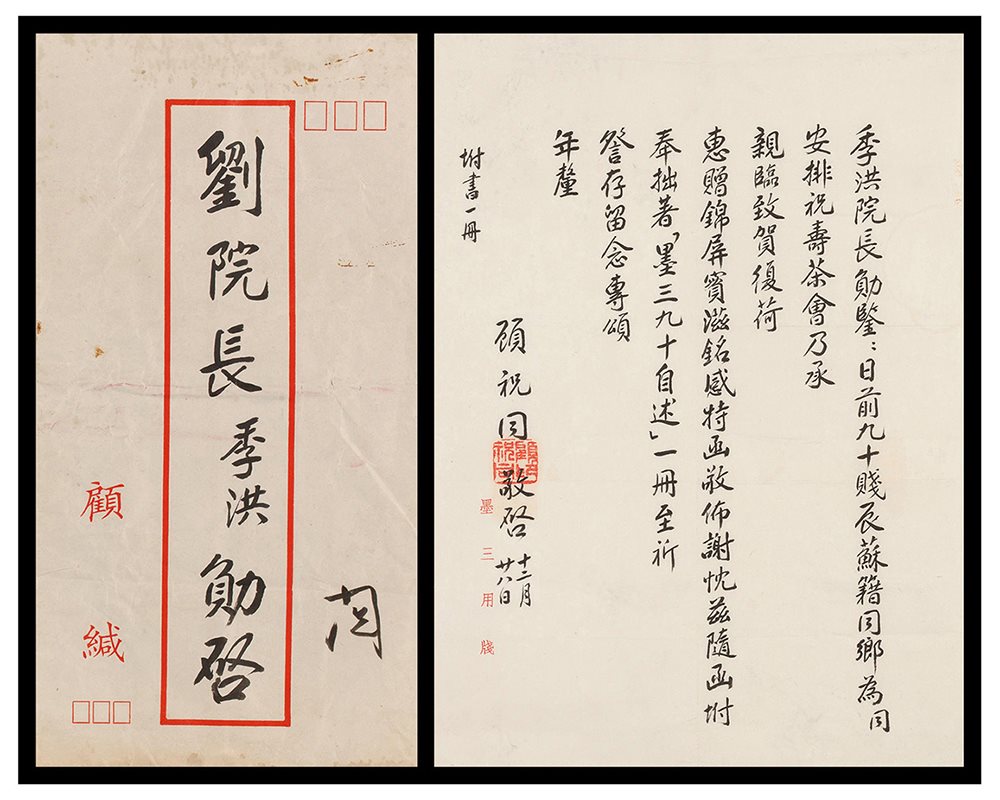 劉院長季洪勛啓
顧緘
季洪院長勛鑒：日前九十賤辰蘇籍同鄉為同
安排祝壽茶會乃承
親臨致賀復荷
惠贈錦屏實滋銘感特函敬佈謝忱茲隨函坿
奉拙著「墨三九十自述」一冊至祈
詧存留念專頌
年釐
顧祝同敬啓 十二月廿八日
坿書一冊
墨三用牋